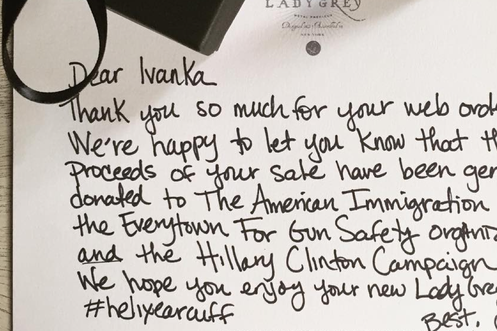 LADY GREY
NEW YORK
Dear Ivanka
Thank you so much for your web
We're happy to let you know that
proceeds of your sale have been
donated to The American Immigration
the Everytown For Gun Safety
and the Hillary Clinton Campaign
We hope you enjoy your new Lady
#helixearcuff
Best,